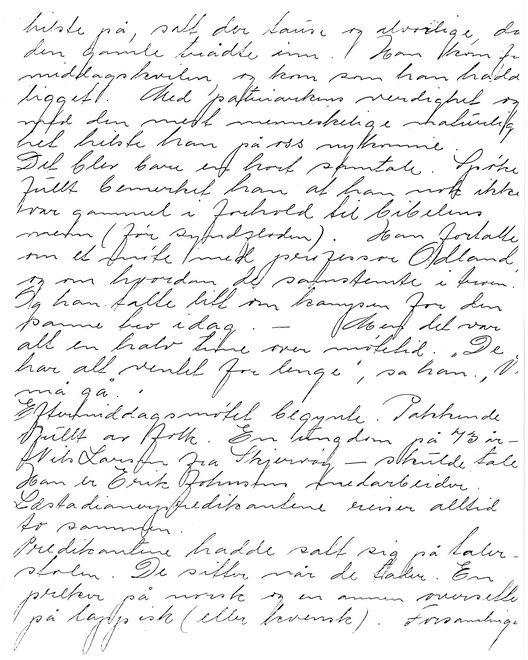 hilste på, satt der tause og alvorlige, da
den gamle trådte inn. Han kom fr
middagshvilen og kom som han hadd
ligget. Med patriarkens verdighet og
med den mest menneskelige naturlig
het hilste han på oss nykomne.
Det blev bare en kort samtale. Spøke
fullt bemerket han at han nok ikke
var gammel i forhold til bibelens
menn (før syndfloden). Han fortalte
om et møte med professor Odland,
og om hvordan de samstemte i troen.
Og han talte litt om kampen for den
sanne tro i dag. — Men det var
alt en halv time over møtetid. "De
har alt ventet for lenge", sa han. "Vi
må gå".
Eftermiddagsmøtet begynte. Pakkende
fullt av folk. En ungdom på 73 år —
Nils Larsen fra Skjervøy — skulde tale
Han er Erik Johnsens medarbeider.
Læstadianerpredikantene reiser alltid
to sammen.
Predikantene hadde satt sig på taler-
stolen. De sitter når de taler. En
preker på norsk og en annen oversette
på lappisk (eller kvensk). Forsamlinge